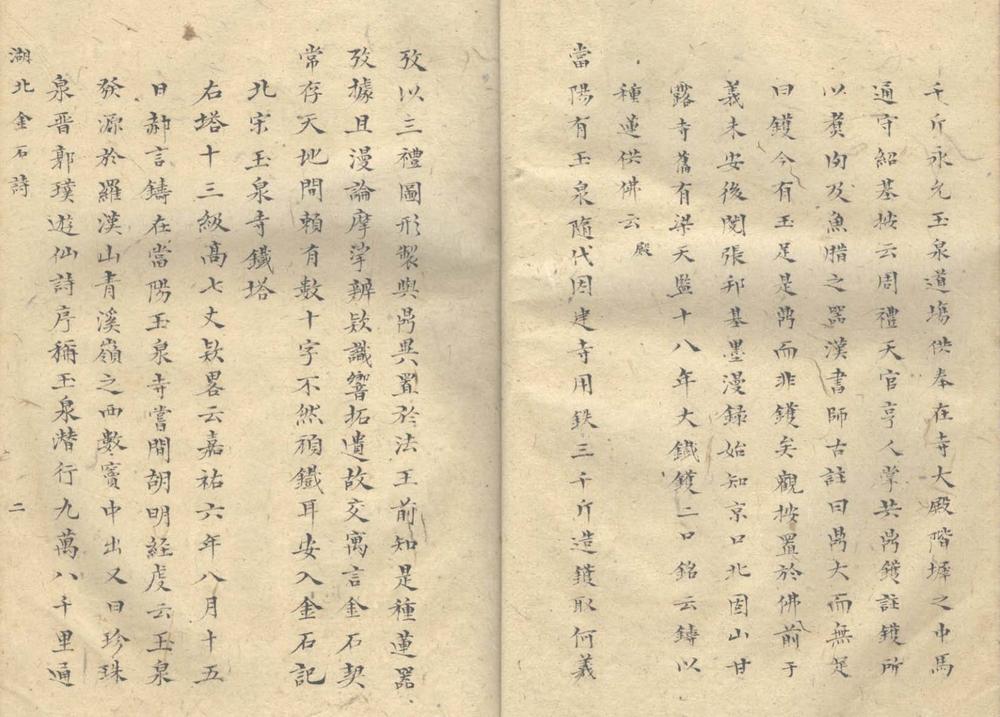 千斤永允玉泉道塲供奉在寺大殿階墀之中馬
通守紹基按云周禮天官亨人掌共鼎鑊註鑊所
以煑肉及魚腊之器漢書師古註曰鼎大而無足
曰鑊今有玉足是鼎而非鑊矣觀按置於佛前于
義未安後閱張邦基墨漫録始知京口北固山甘
露寺舊有梁天監十八年大鐵鑊二口銘云鑄以
種蓮供佛云殿
當陽有玉泉隨代因建寺用鉄三千斤造鑊取何義
攷以三禮圖形製與鼎異置於法王前知是種蓮器
攷據且漫論摩挲辨欵識響拓遺故交寓言金石契
常存天地間頼有數十字不然頑鐵耳安入金石記
北宋玉泉寺鐵塔
右塔十三級高七丈欵畧云嘉祐六年八月十五
日郝言鑄在當陽玉泉寺嘗聞胡明経虔云玉泉
發源於羅漢山青溪嶺之西數竇中出又曰珍珠
泉晋郭璞遊仙詩序稱玉泉潜行九萬八千里通
湖北金石詩
二